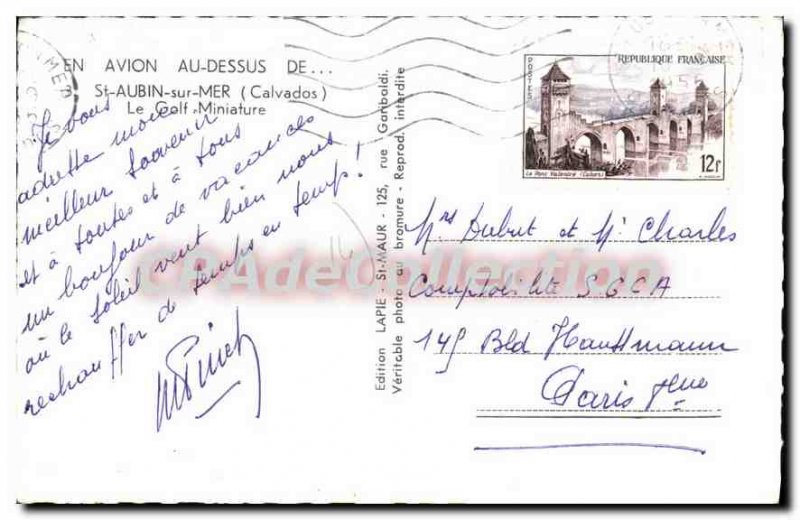 EN AVION AU-DESSUS DE...
St-AUBIN-sur-MER (Calvados)
Le Golf Miniature
Je vous
adresse mon
meilleur souvenir
et à toutes et à tous
un bonjour de vacances
où le soleil veut bien nous
réchauffer de temps en temps!
Edition LAPIE - St-MAUR - 125, rue Garibaldi.
Véritable photo au bromure - Reprod. interdite
REPUBLIQUE FRANÇAISE
POSTES
Le Pont Valentré (Cahors)
12F
Mrs Dubut et Mr Charles
Comptabilité S.G.C.A
149 Bld Haussmann
Paris 8eme
CPAdeCollection